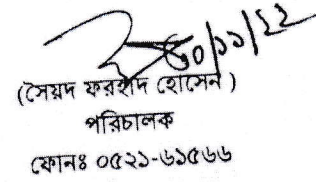 ৩০/১১/২২
(সৈয়দ ফরহাদ হোসেন )
পরিচালক
ফোনঃ ০৫২১-৬১৫৬৬